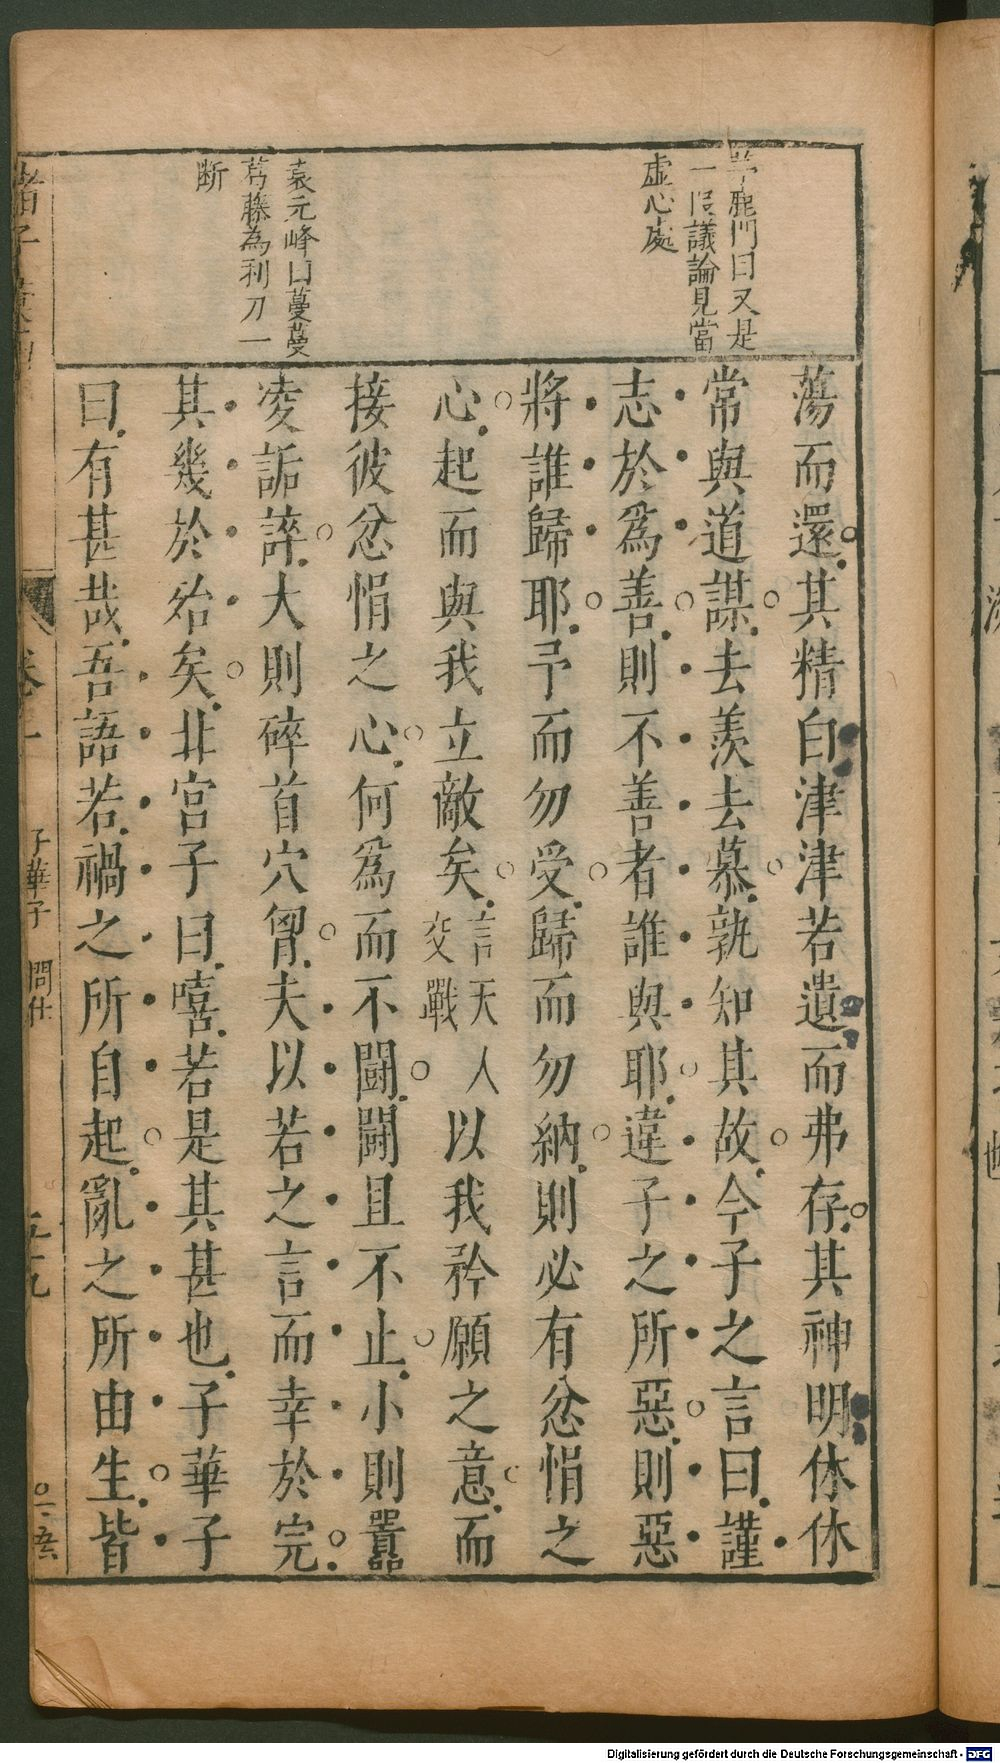 茅鹿門曰又是
一段議論見當
虛心處
袁元峰曰蔓蔓
葛藤為利刀一
斷
蕩而還其精白津津若遺而弗存其神明休休
常與道謀去羨去慕孰知其故今子之言曰謹
志於爲善則不善者誰與耶違子之所惡則惡
將誰歸耶予而勿受歸而勿納則必有忿悁之
心起而與我立敵矣言天人交戰以我矜願之意而
接彼忿悁之心何爲而不鬪鬪且不止小則嚚
凌詬誶大則碎首穴胷夫以若之言而幸於完
其幾於殆矣北宮子曰嘻若是其甚也子華子
曰有甚哉吾語若禍之所自起亂之所由生皆
卷
子華子 問仕
五十九
Digitalisierung gefördert durch die Deutsche Forschungsgemeinschaft - DFG